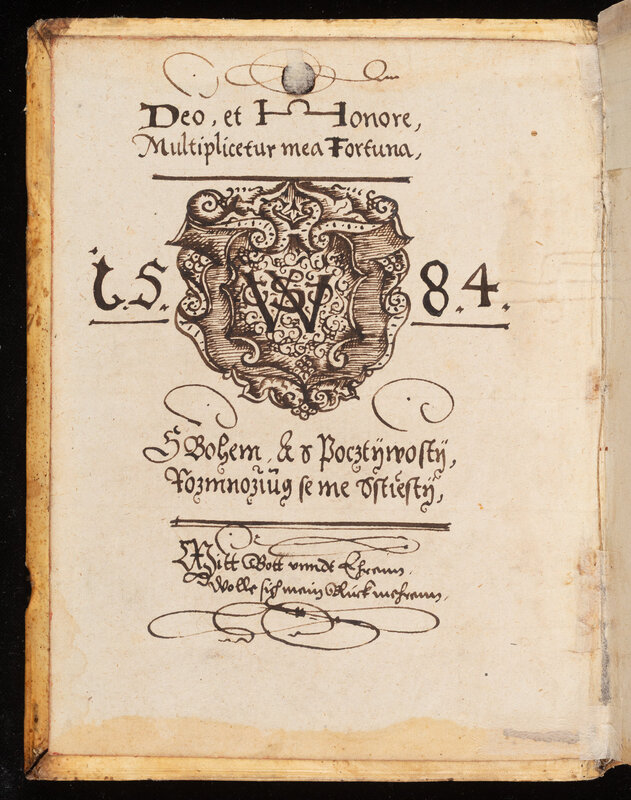 Deo, et Honore,
Multiplicetur mea Fortuna,
15.84.
WS
S Bohem, A s Pocztÿwostÿ,
Rozmnoziůg se me Sstiestÿ,
Mitt Gott vnndt Ehrenn,
Wolle sich mein Glück mehrenn.